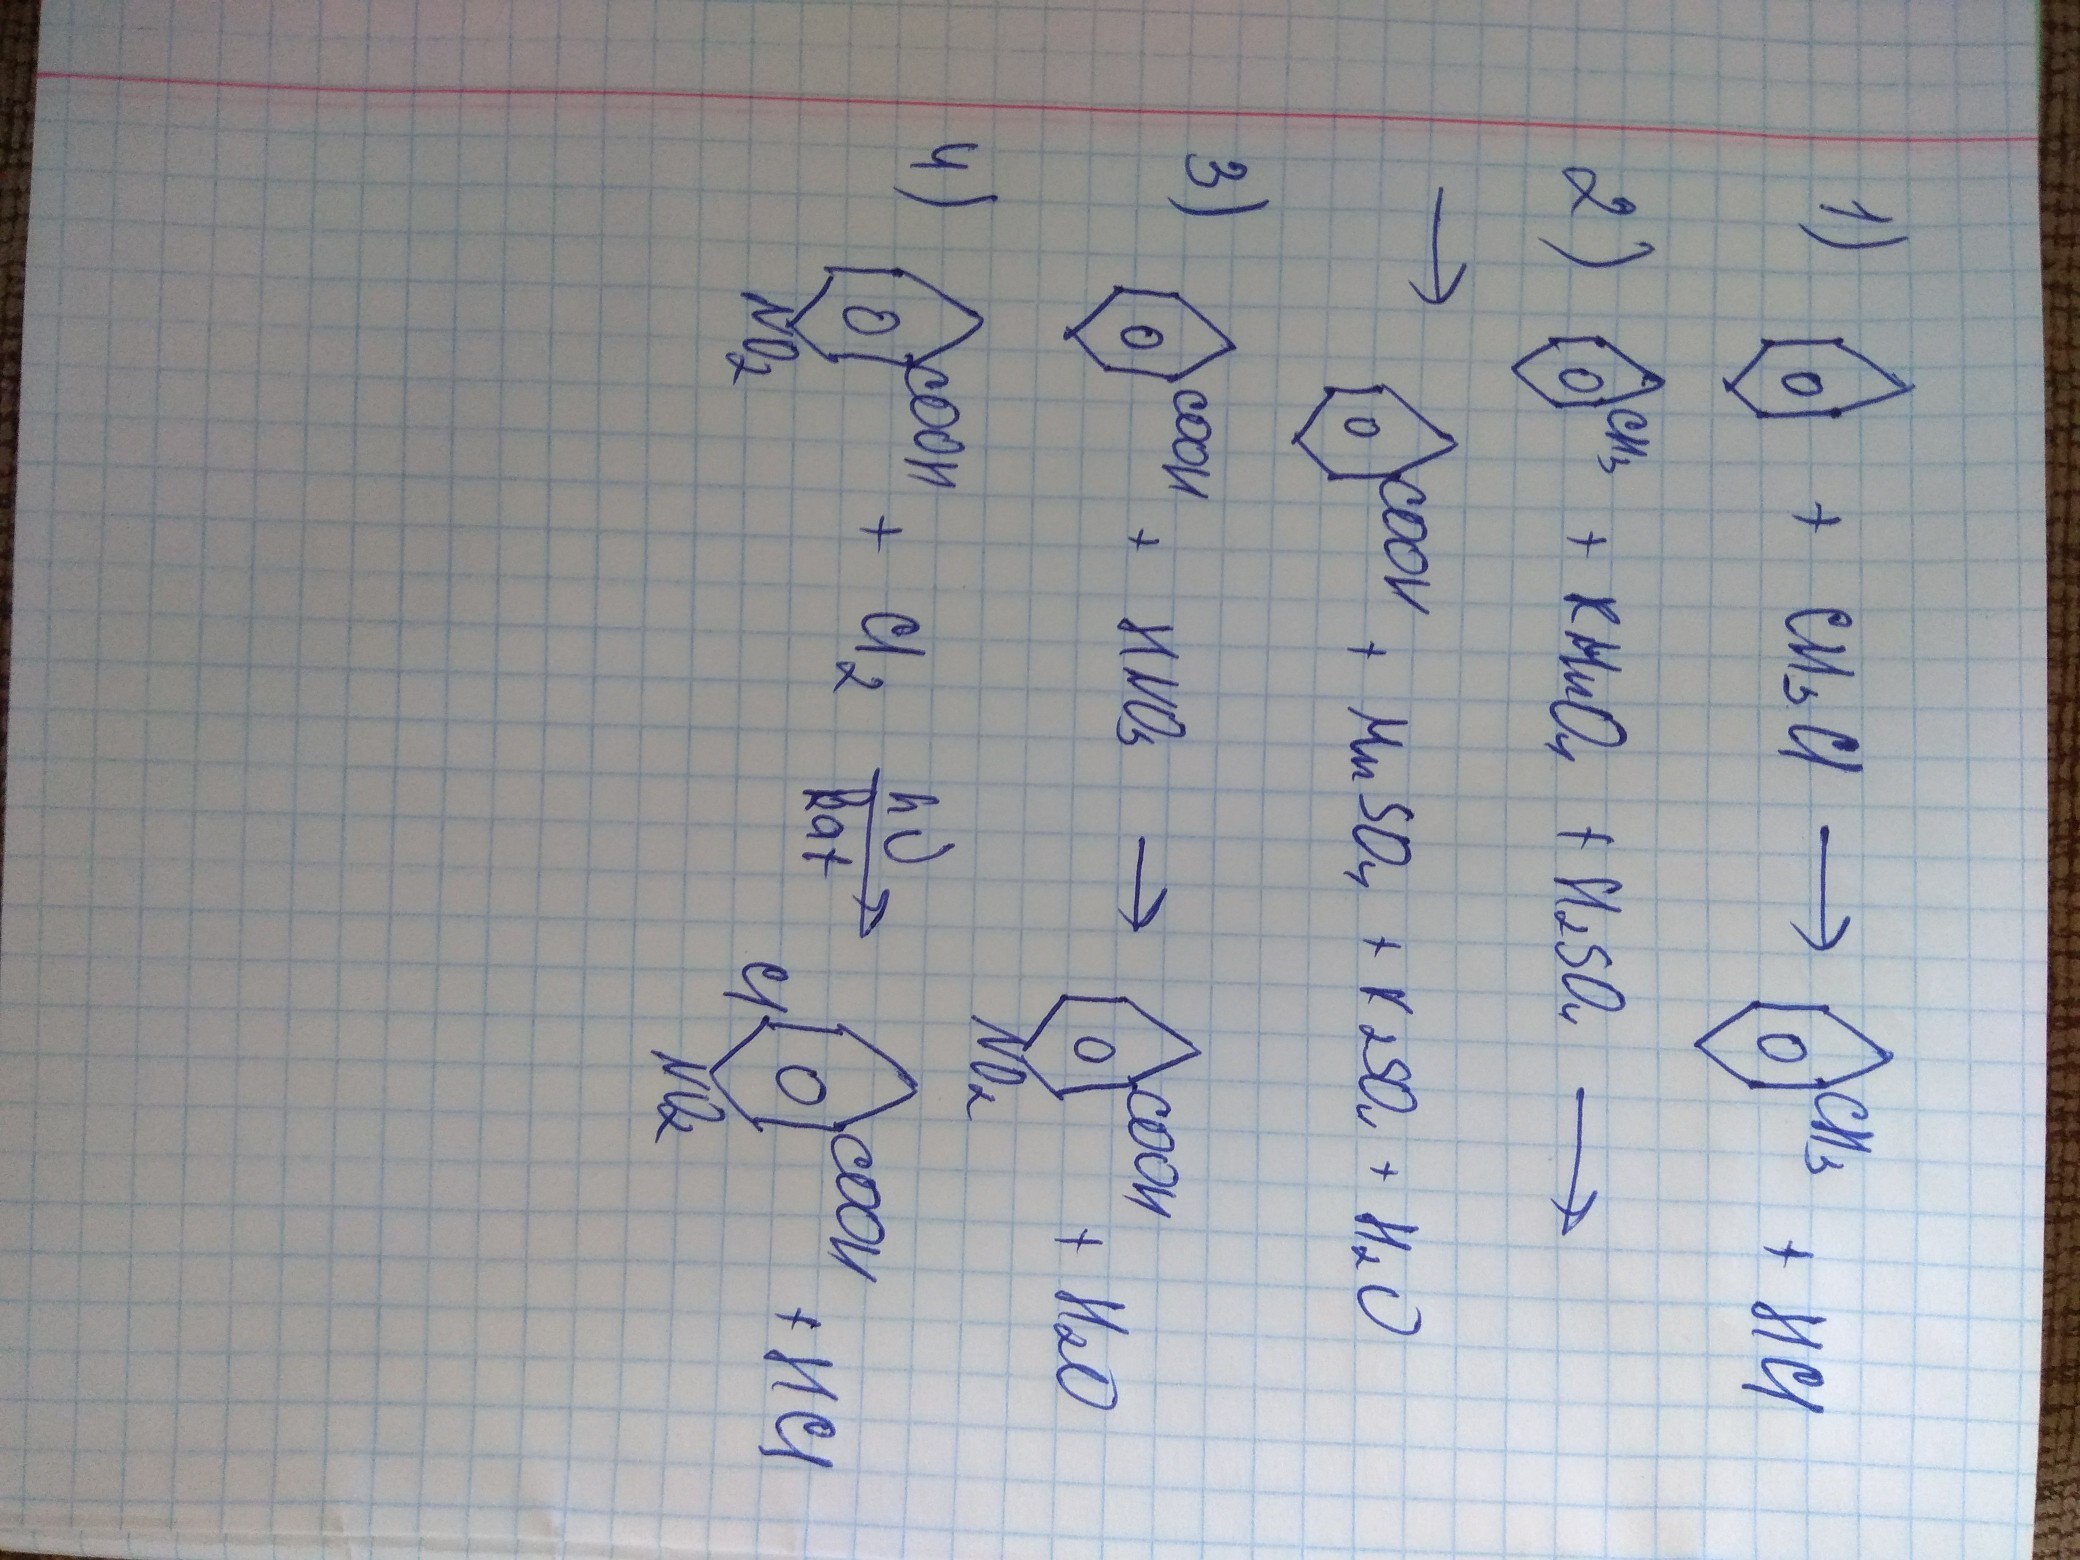 1) + CH3Cl → CH3 + HCl
2) CH3 + KMnO4 + H2SO4 →
→ COOH + MnSO4 + K2SO4 + H2O
3) COOH + HNO3 → COOH NO2 + H2O
4) COOH NO2 + Cl2 hν kat → Cl COOH NO2 + HCl